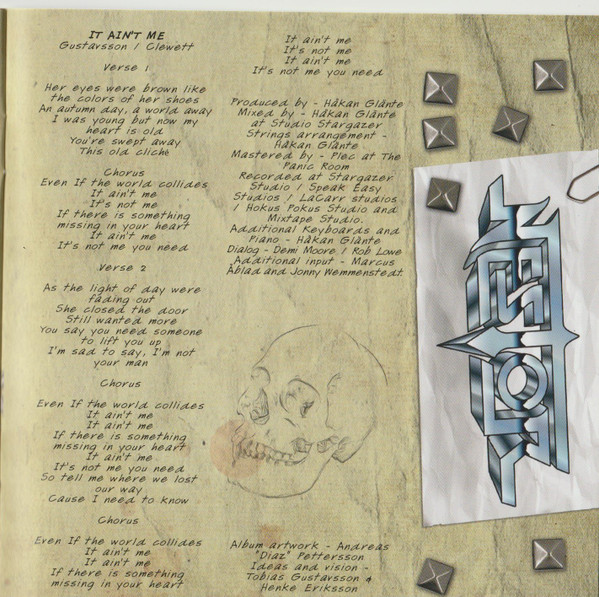 IT AIN'T ME
Gustavsson / Clewett
Verse 1
Her eyes were brown like
the colors of her shoes
An autumn day, a world away
I was young but now my
heart is old
You're swept away
This old cliché
Chorus
Even If the world collides
It ain't me
It's not me
If there is something
missing in your heart
It ain't me
It's not me you need
Verse 2
As the light of day were
fading out
She closed the door
Still wanted more
You say you need someone
to lift you up
I'm sad to say, I'm not
your man
Chorus
Even If the world collides
It ain't me
It ain't me
If there is something
missing in your heart
It ain't me
It's not me you need
So tell me where we lost
our way
Cause I need to know
Chorus
Even If the world collides
It ain't me
It ain't me
If there is something
missing in your heart
It ain't me
It's not me
It ain't me
It's not me you need
Produced by - Håkan Glänte
Mixed by - Håkan Glänte
at Studio Stargazer
Strings arrangement -
Håkan Glänte
Mastered by - Plec at The
Panic Room
Recorded at Stargazer
Studio / Speak Easy
Studios / LaCarr studios
/ Hokus Pokus Studio and
Mixtape Studio.
Additional Keyboards and
Piano - Håkan Glänte
Dialog - Demi Moore / Rob Lowe
Additional input - Marcus
Åblad and Jonny Wemmenstedt
Album artwork - Andreas
"Diaz" Pettersson
Ideas and vision -
Tobias Gustavsson &
Henke Eriksson
NESTOR